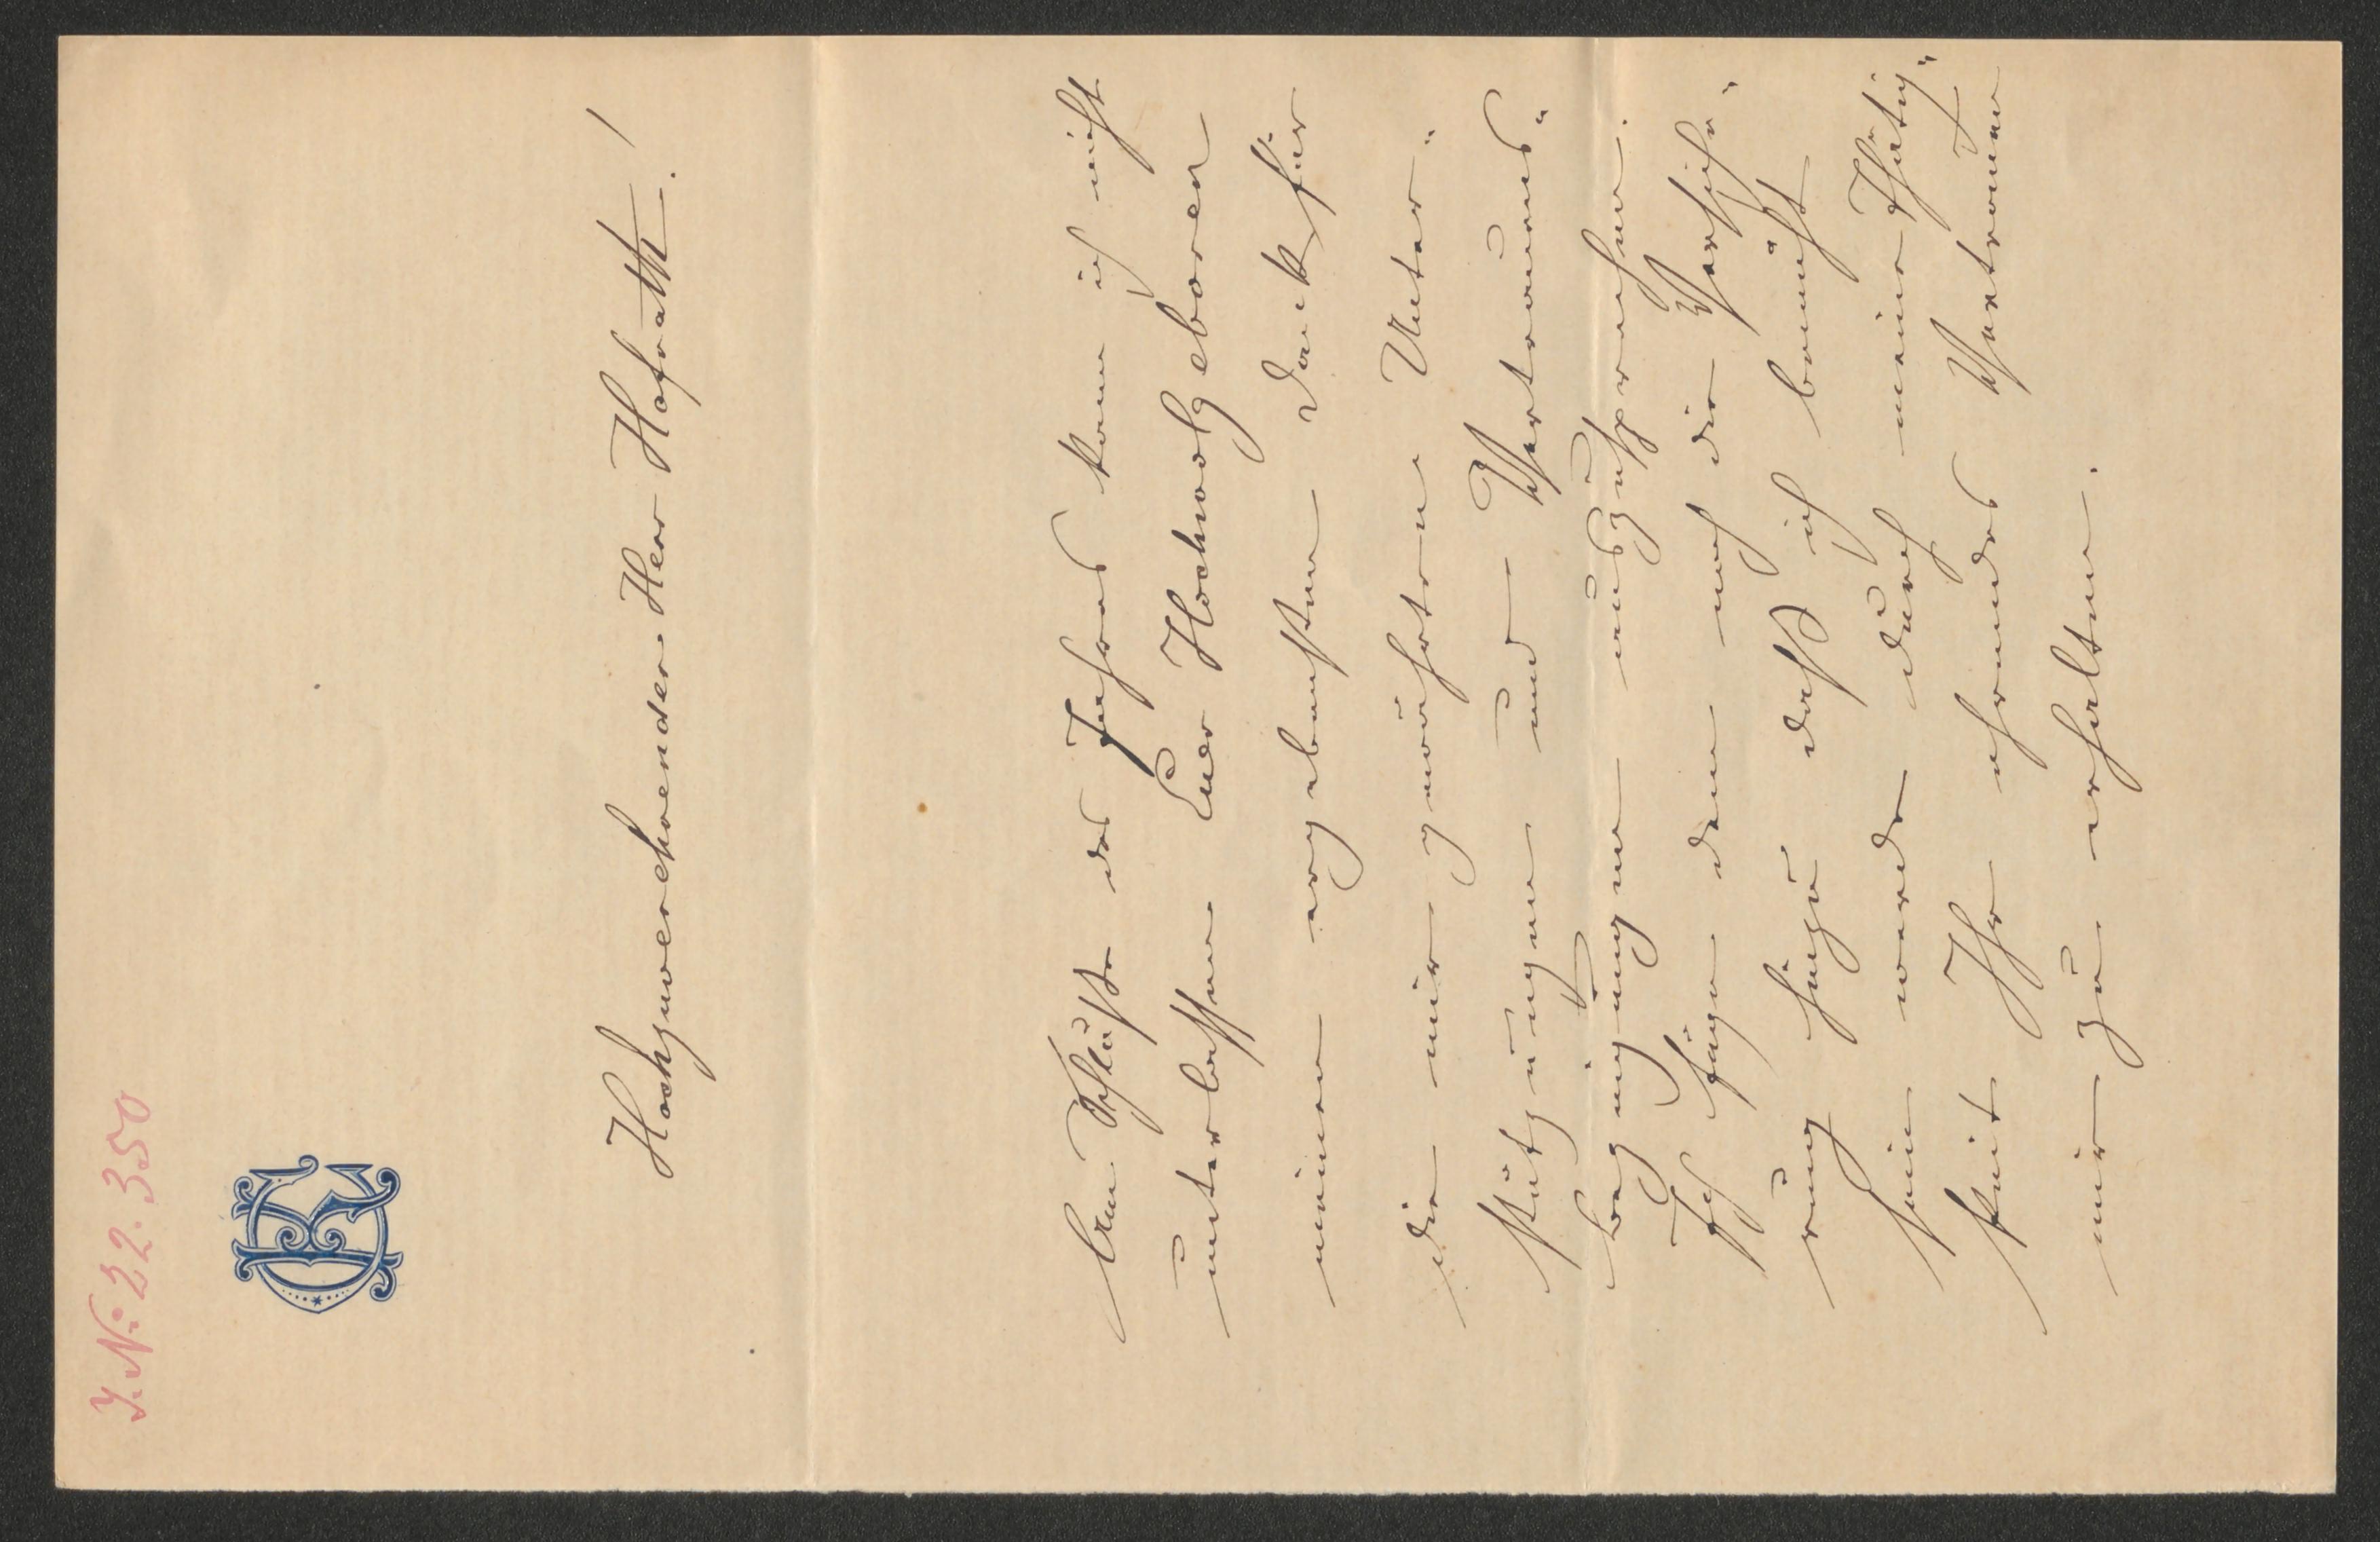 J. N: 22.350
Hochzuverehrender Herr Hofrath!
Am Schluße des Jahres kann ich nicht
unterlassen Euer Hochwolgeboren
meinen ergebensten Dank für
die mir gewährten Unter-
stützungen und Vertrauens-
bezeigungen auszusprechen.
Ich füge dem noch die Versiche-
rung hinzu daß ich bemüht
sein werde durch meine Thätig-
keit Ihr ehrendes Vertrauen
mir zu erhalten.